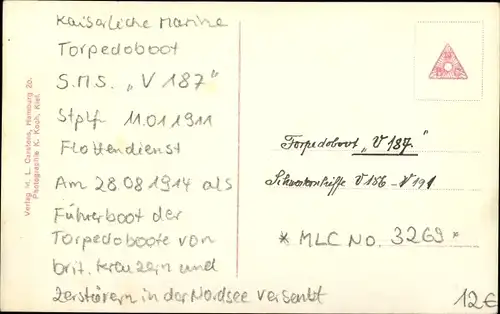 Kaiserliche Marine
Torpedoboot
S.M.S. „V 187"
Stplf 11.01 1911
Flottendienst
Am 28.08 1914 als
Führerboot der
Torpedoboote von
brit. Kreuzern und
Zerstörern in der Nordsee versenkt
Verlag M. L. Carstens, Hamburg 20.
Photographie K. Koch, Kiel.
Torpedoboot „V 187."
Schwesternschiffe V 186 - V 191
* MLC No. 3269 *
12€